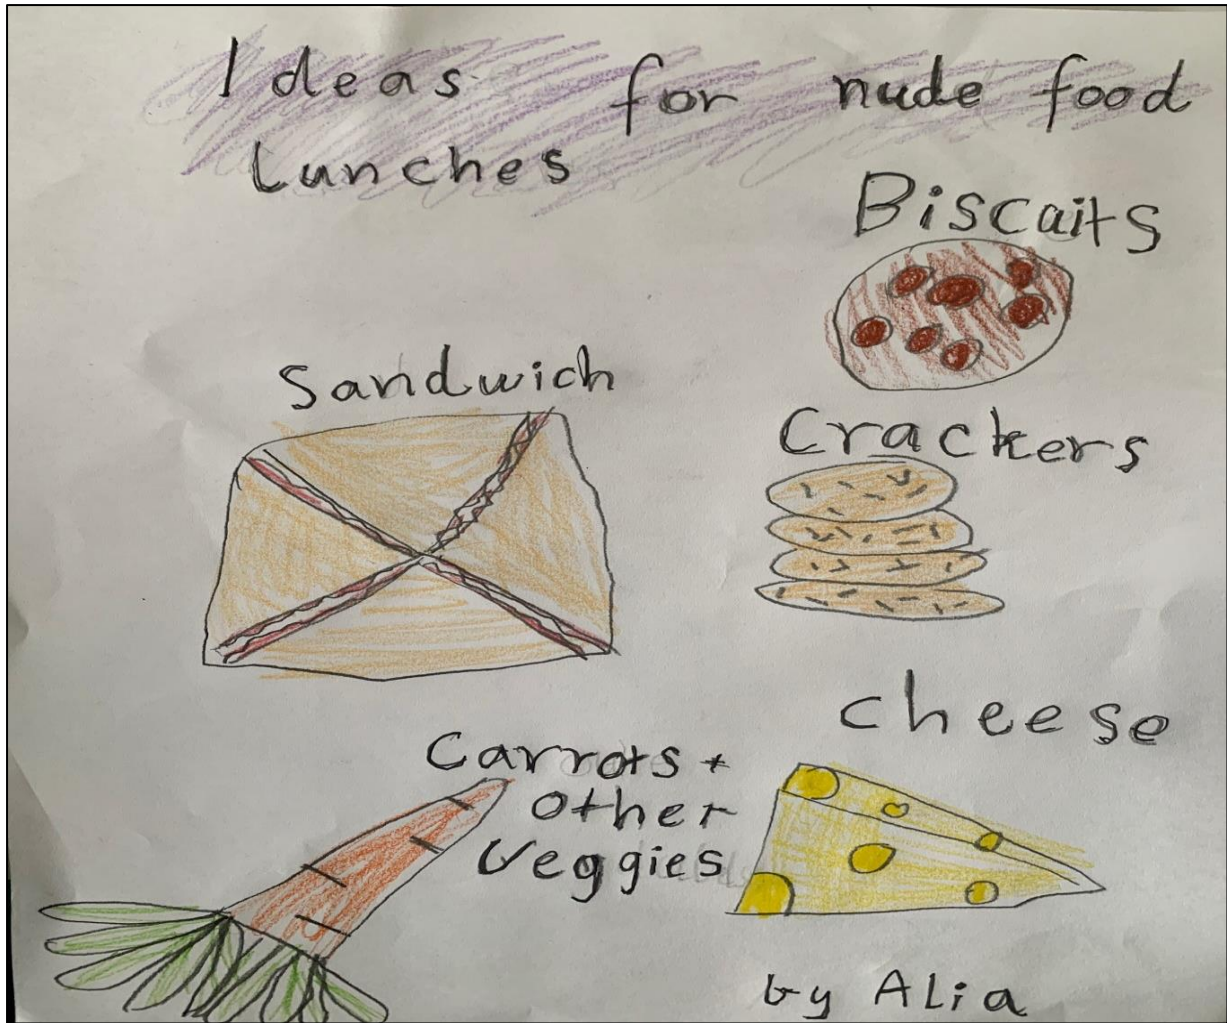 Ideas for nude food
Lunches
Biscuits
Sandwich
Crackers
cheese
Carrots +
Other
Veggies
by ALia